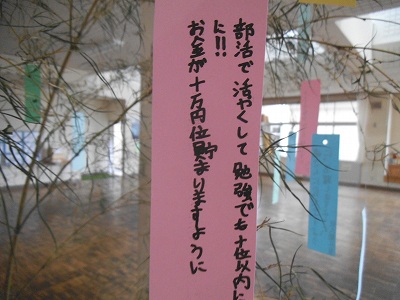 部活で活やくして勉強でも十位以内に
に!!
お金が十万円位貯まりますように